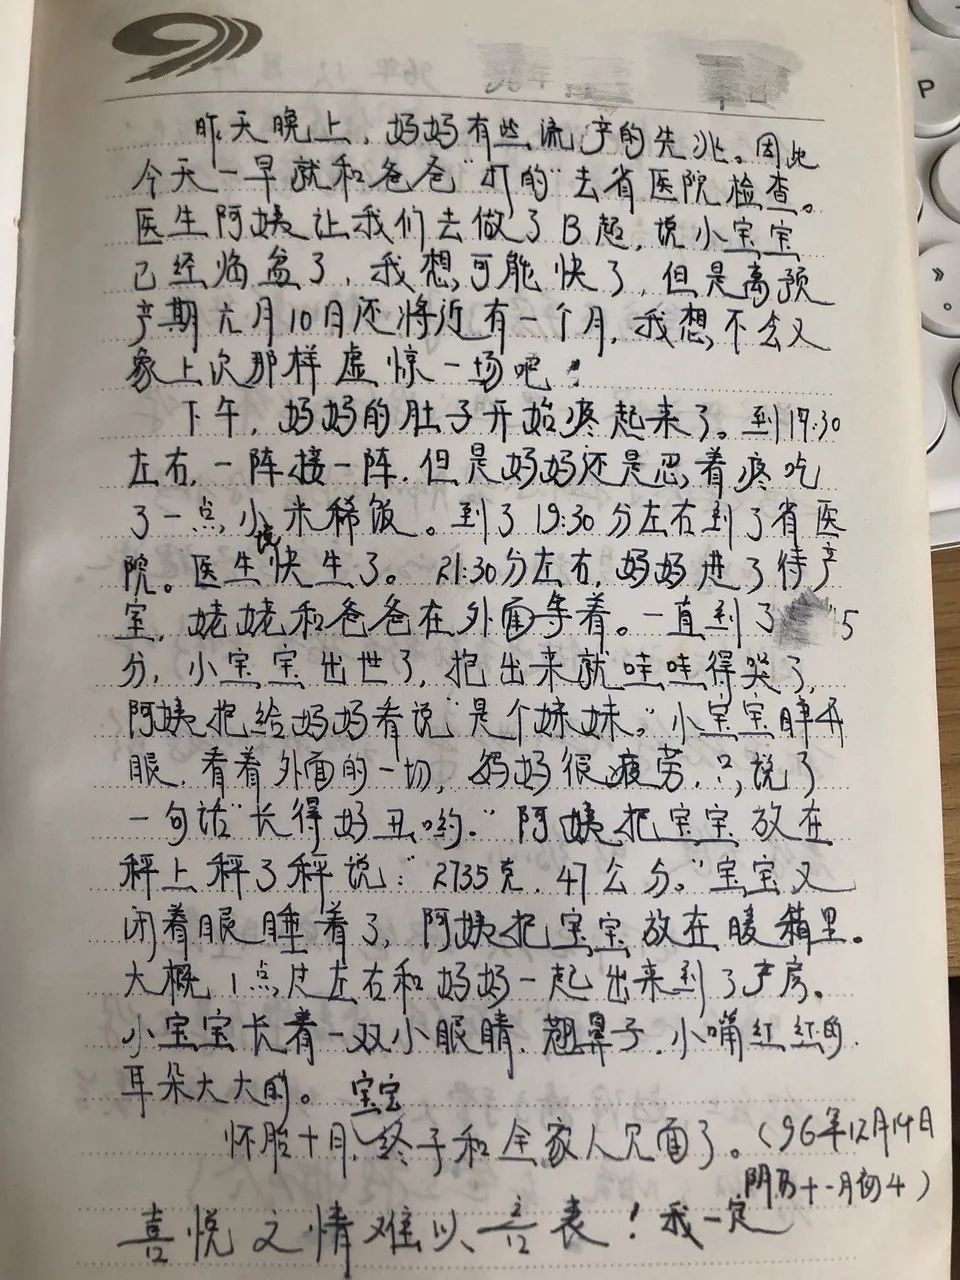 昨天晚上，妈妈有些流产的先兆。因此
今天一早就和爸爸"打的"去省医院检查。
医生阿姨让我们去做了B超，说小宝宝
已经临盆了，我想可能快了，但是离预
产期元月10日还将近有一个月，我想不会又
象上次那样虚惊一场吧！
下午，妈妈的肚子开始疼起来了。到17:30
左右，一阵接一阵，但是妈妈还是忍着疼吃
了一点小米稀饭。到了19:30分左右到了省医
院。医生说快生了。21:30分左右，妈妈进了待产
室，姥姥和爸爸在外面等着。一直到了 15
分，小宝宝出世了，抱出来就哇哇得哭了，
阿姨抱给妈妈看说"是个妹妹。"小宝宝睁开
眼，看着外面的一切，妈妈很疲劳，只说了
一句话"长得好丑哟。"阿姨把宝宝放在
秤上秤了秤说："2735克，47公分。"宝宝又
闭着眼睡着了，阿姨把宝宝放在暖箱里。
大概1点过左右和妈妈一起出来到了产房。
小宝宝长着一双小眼睛，翘鼻子，小嘴红红的，
耳朵大大的。
怀胎十月，宝宝终于和全家人见面了。（96年12月14日
阴历十一月初4）
喜悦之情难以言表！我一定
P